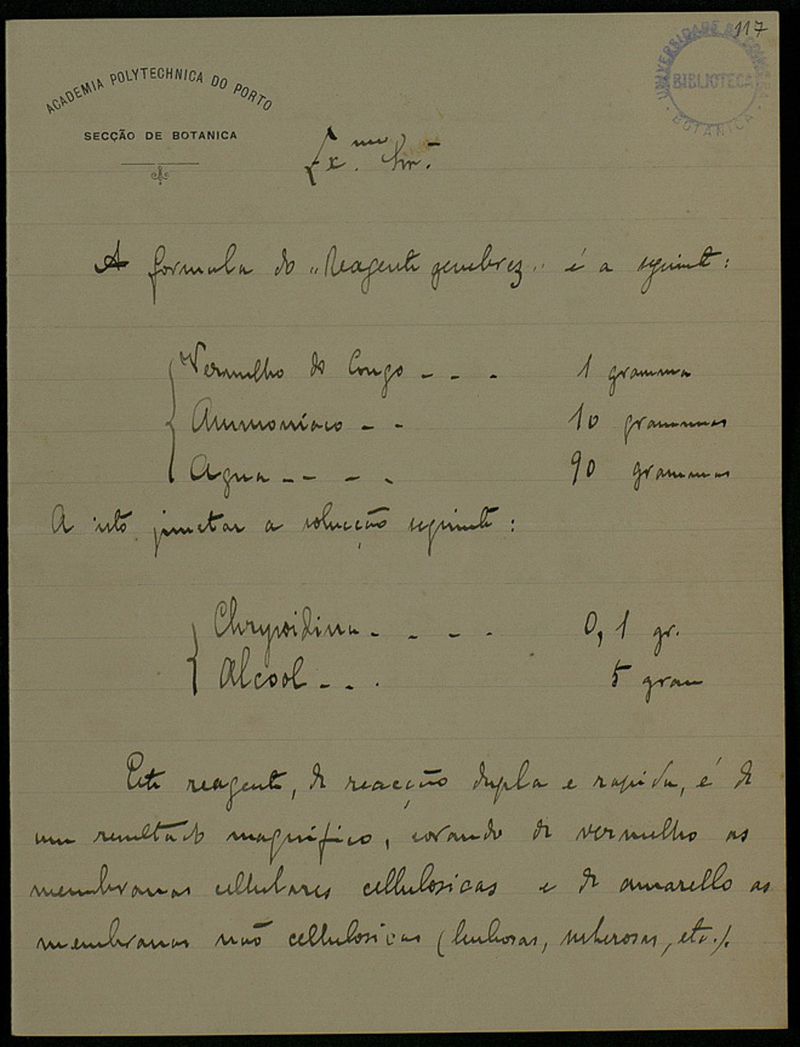 117
ACADEMIA POLYTECHNICA DO PORTO
SECÇÃO DE BOTANICA
UNIVERSIDADE DE COIMBRA
BIBLIOTECA
BOTANICA
Ex.mo Snr.
A formula do "Reagente genebrez" é a seguinte:
Vermelho do Congo - - - 1 gramma
Ammoniaco - - 10 grammas
Agua - - - - 90 grammas
A isto junctar a solucção seguinte:
Chrysoidina - - - - 0,1 gr.
Alcool - - . 5 gram
Este reagente, de reacção dupla e rapida, é de
um resultado magnifico, corando de vermelho as
membranas cellulares cellulosicas e de amarello as
membranas não cellulosicas (lenhosas, suberosas, etc.).